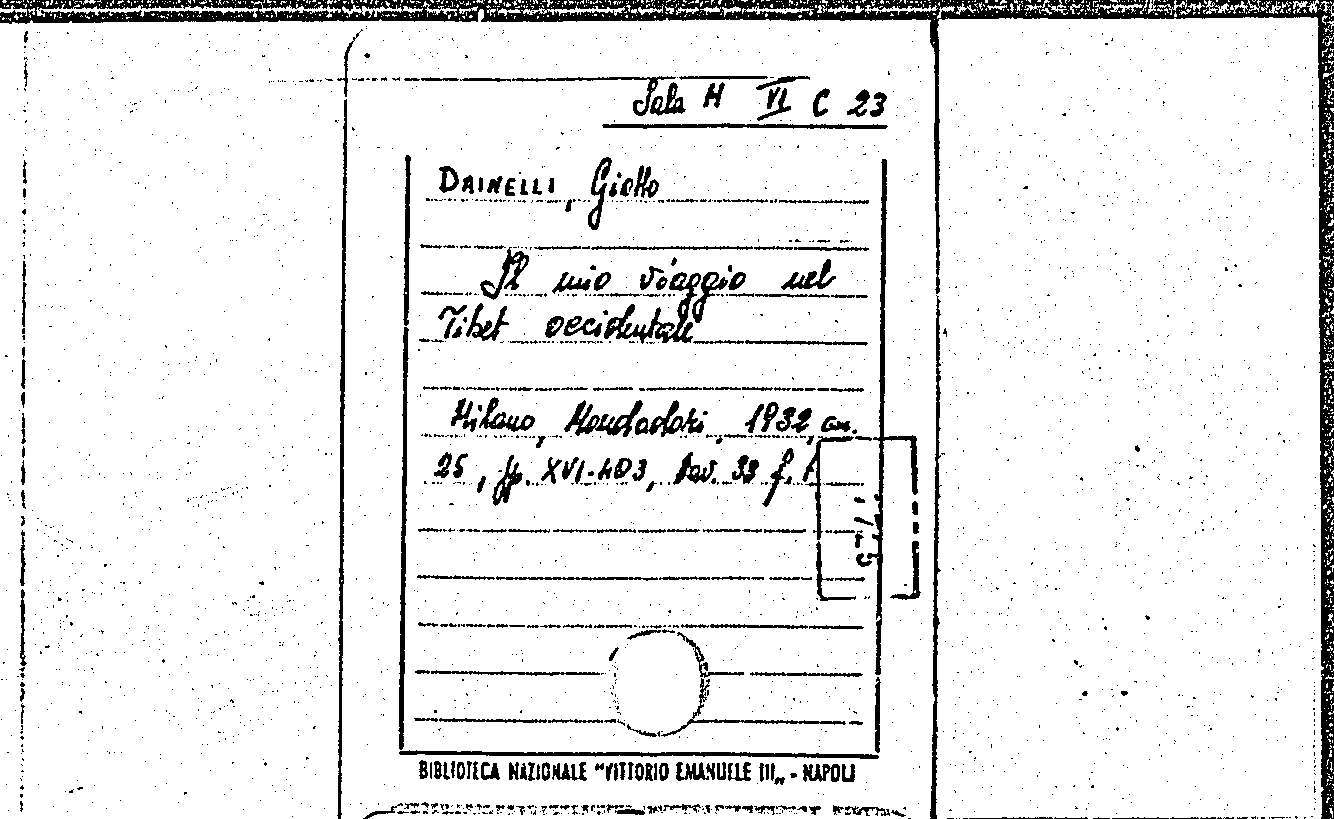 Sala H VI C 23
DAINELLI, Giotto
Il mio viaggio nel
Tibet occidentale
Milano, Mondadori, 1932, cm.
25, pp. XVI-403, tav. 33 f. t
BIBLIOTECA NAZIONALE "VITTORIO EMANUELE III„ - NAPOLI